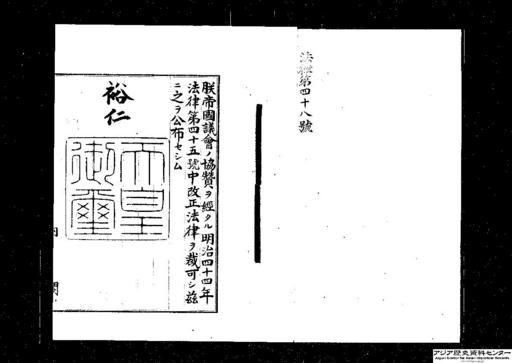 法律第四十八號
朕帝國議會ノ協贊ヲ經タル明治四十四年
法律第四十五號中改正法律ヲ裁可シ茲
ニ之ヲ公布セシム
裕仁
天皇
御璽
内
閣
アジア歴史資料センター
Japan Center for Asian Historical Records